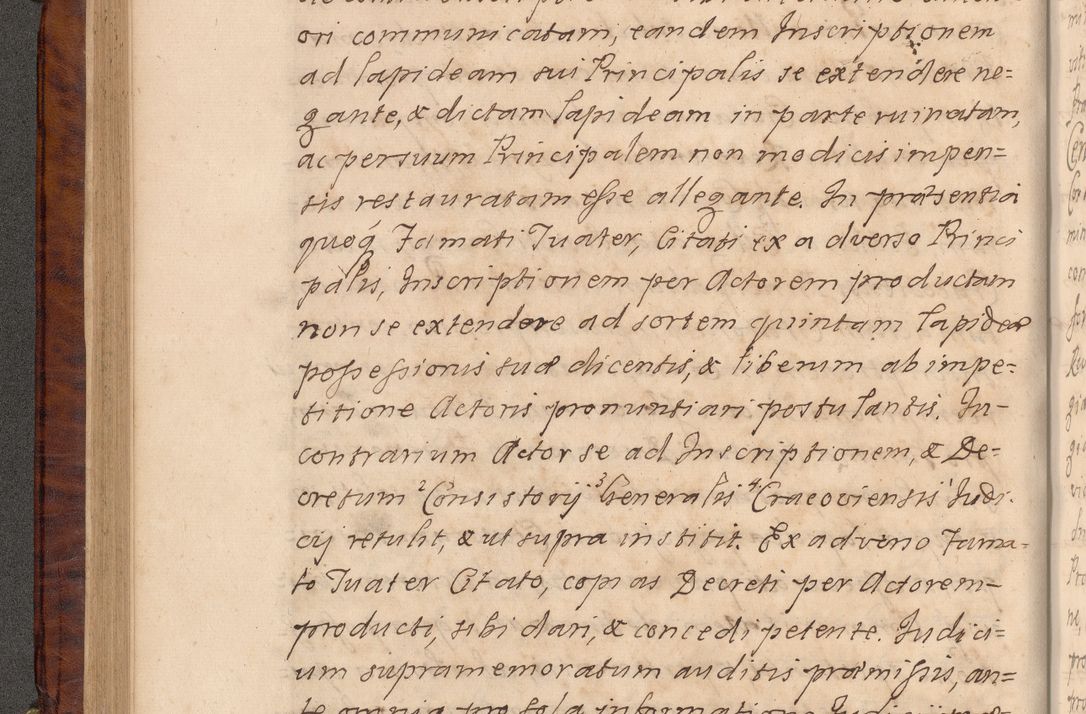 ori communicatam, eandem Inscriptionem
ad lapideam sui Principalis se extendere ne=
gante, & dictam lapideam in parte ruinatam,
ac per suum Principalem non modicis impen=
sis restauratam esse allegante. In præsentia
quoq́ Famati Tuater, Citati ex adverso Princi
palis, Inscriptionem per Actorem productam
non se extendere ad sortem quintam lapideæ
possessionis suæ dicentis, & liberum ab impe=
titione Actoris pronuntiari postulantis. In-
contrarium Actor se ad Inscriptionem, & De=
cretum ²Consistorij ³Generalis ⁴Cracoviensis ¹Judi.
cij retulit, & ut supra institit. Ex adverso Fama=
to Tuater Citato, copias Decreti per Actorem=
producti, sibi dari, & concedi petente. Judici=
um supramemoratum auditis præmissis, an=
te omnia pro sola informatione